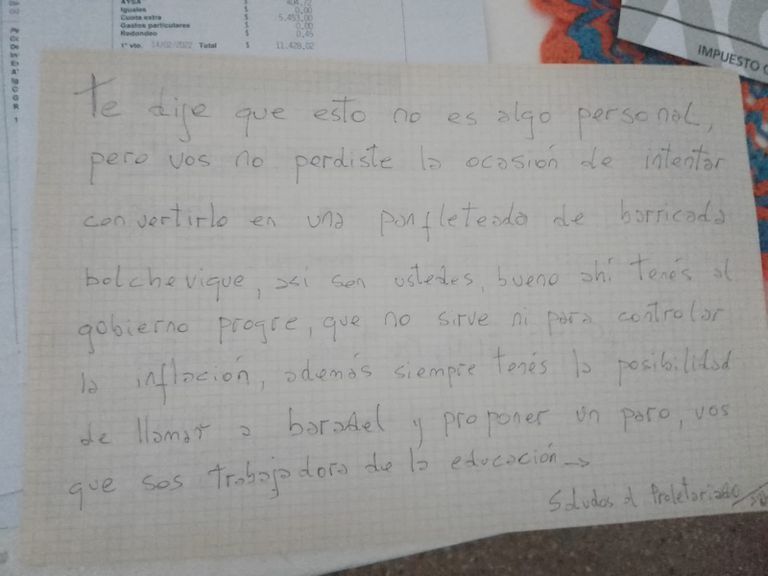 AYSA $ 404,72
Iguales $ 0,00
Cuota extra $ 5.453,00
Gastos particulares $ 0,00
Redondeo $ 0,45
1° vto. 14/02/2022 Total $ 11.428,02
IMPUESTO
Te dije que esto no es algo personal,
pero vos no perdiste la ocasión de intentar
convertirlo en una panfleteada de barricada
bolchevique, asi son ustedes, bueno ahí tenés al
gobierno progre, que no sirve ni para controlar
la inflación, además siempre tenés la posibilidad
de llamar a baradel y proponer un paro, vos
que sos trabajadora de la educación →
Saludos al Proletariado